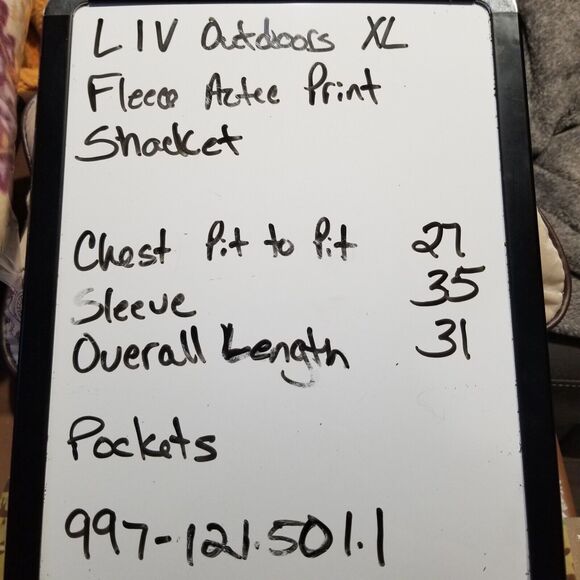 LIV Outdoors XL
Fleece Aztec Print
Shacket
Chest Pit to Pit 27
Sleeve 35
Overall Length 31
Pockets
997-121.501.1